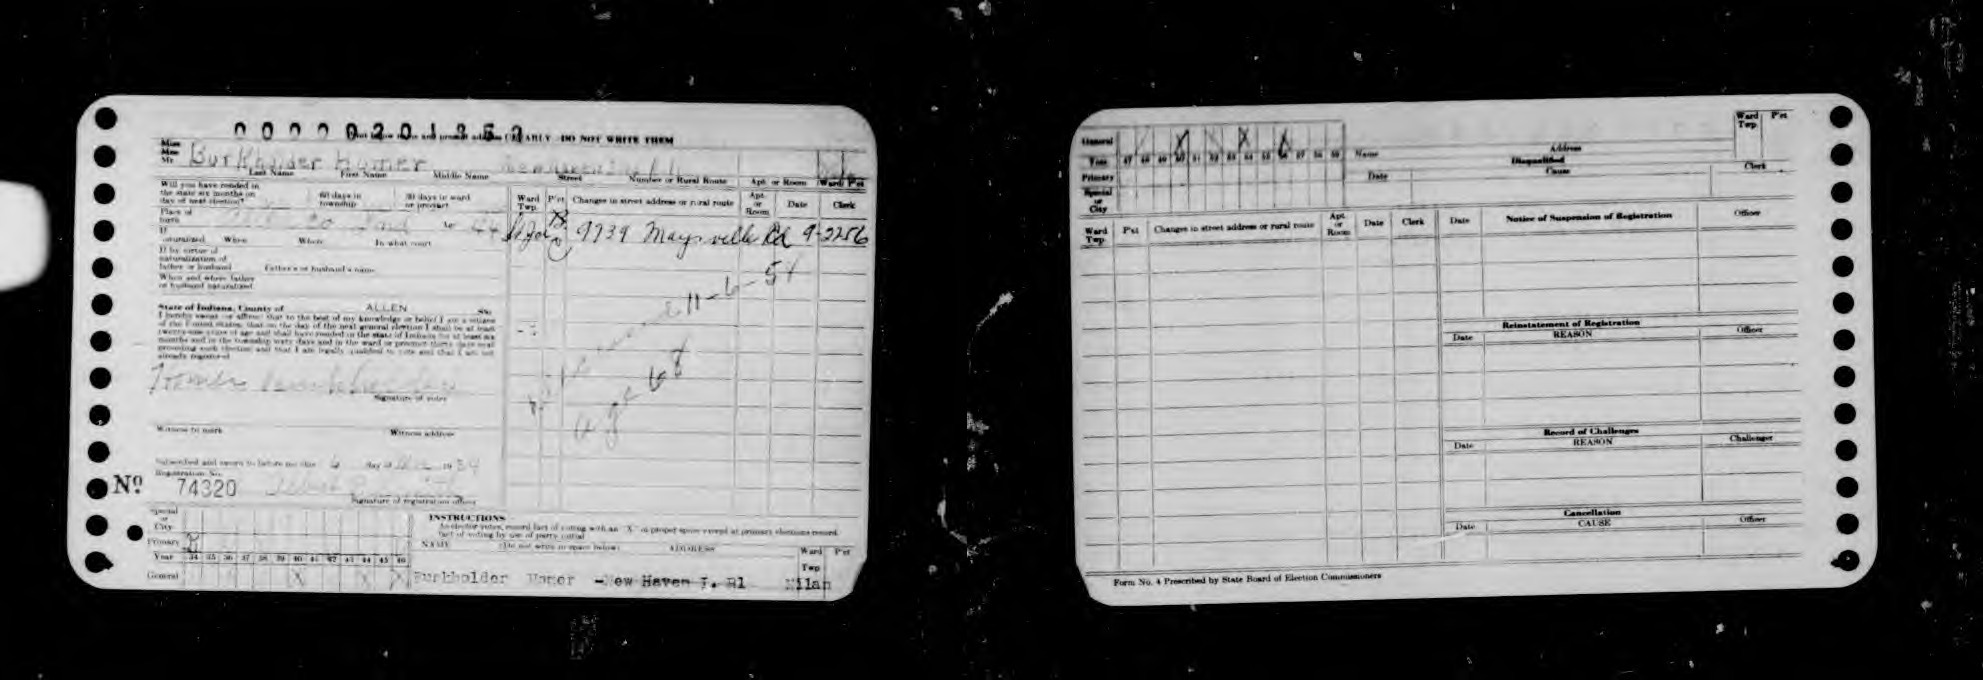 0000020135
CLEARLY - DO NOT WRITE THEM
Miss
Mrs
Mr Burkholder Homer
Last Name First Name Middle Name Street Number or Rural Route Apt. or Room Ward P'ct
Will you have resided in the state six months on day of next election? 60 days in township 30 days in ward or precinct
Ward Twp. P'ct Changes in street address or rural route Apt. or Room Date Clerk
Place of birth Age 44
9739 Maysville Rd 9-2256
If naturalized When Where In what court
If by virtue of naturalization of father or husband Father's or husband's name
When and where father or husband naturalized
11-6-54
State of Indiana, County of ALLEN SS:
I hereby swear or affirm that to the best of my knowledge or belief I am a citizen
of the United States; that on the day of the next general election I shall be at least
twenty-one years of age and shall have resided in the state of Indiana for at least six
months and in the township sixty days and in the ward or precinct thirty days next
preceding such election and that I am legally qualified to vote and that I am not
already registered.
Homer Burkholder
Signature of voter
age 68
Witness to mark Witness address
Subscribed and sworn to before me this 6 day of 1934
Registration No.
No 74320
Signature of registration officer
Special or City
Primary
Year 34 35 36 37 38 39 40 41 42 43 44 45 46
General X X X
INSTRUCTIONS
As elector votes, record fact of voting with an "X" in proper space except at primary elections record
fact of voting by use of party initial
NAME (Do not write in space below) ADDRESS Ward Twp P'ct
Burkholder Homer -New Haven I. R1 Milan
General X X X
Year 47 48 49 50 51 52 53 54 55 56 57 58 59
Primary
Special or City
Name Address Ward Twp. P'ct
Disqualified
Date Cause Clerk
Ward Twp. P'ct Changes in street address or rural route Apt. or Room Date Clerk
Date Notice of Suspension of Registration Officer
Reinstatement of Registration
Date REASON Officer
Record of Challenges
Date REASON Challenger
Cancellation
Date CAUSE Officer
Form No. 4 Prescribed by State Board of Election Commissioners